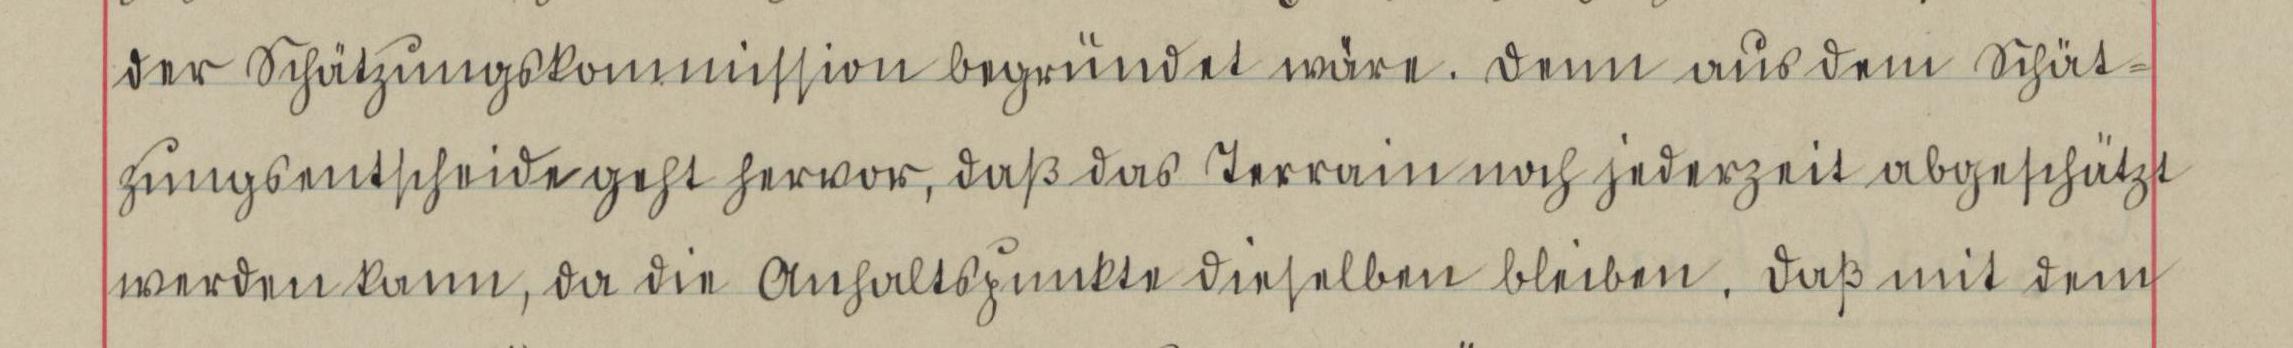 der Schätzungskommission begründet wäre. Denn aus dem Schät-
zungsentscheide geht hervor, daß das Terrain noch jederzeit abgeschätzt
werden kann, da die Anhaltspunkte dieselben bleiben. Daß mit dem